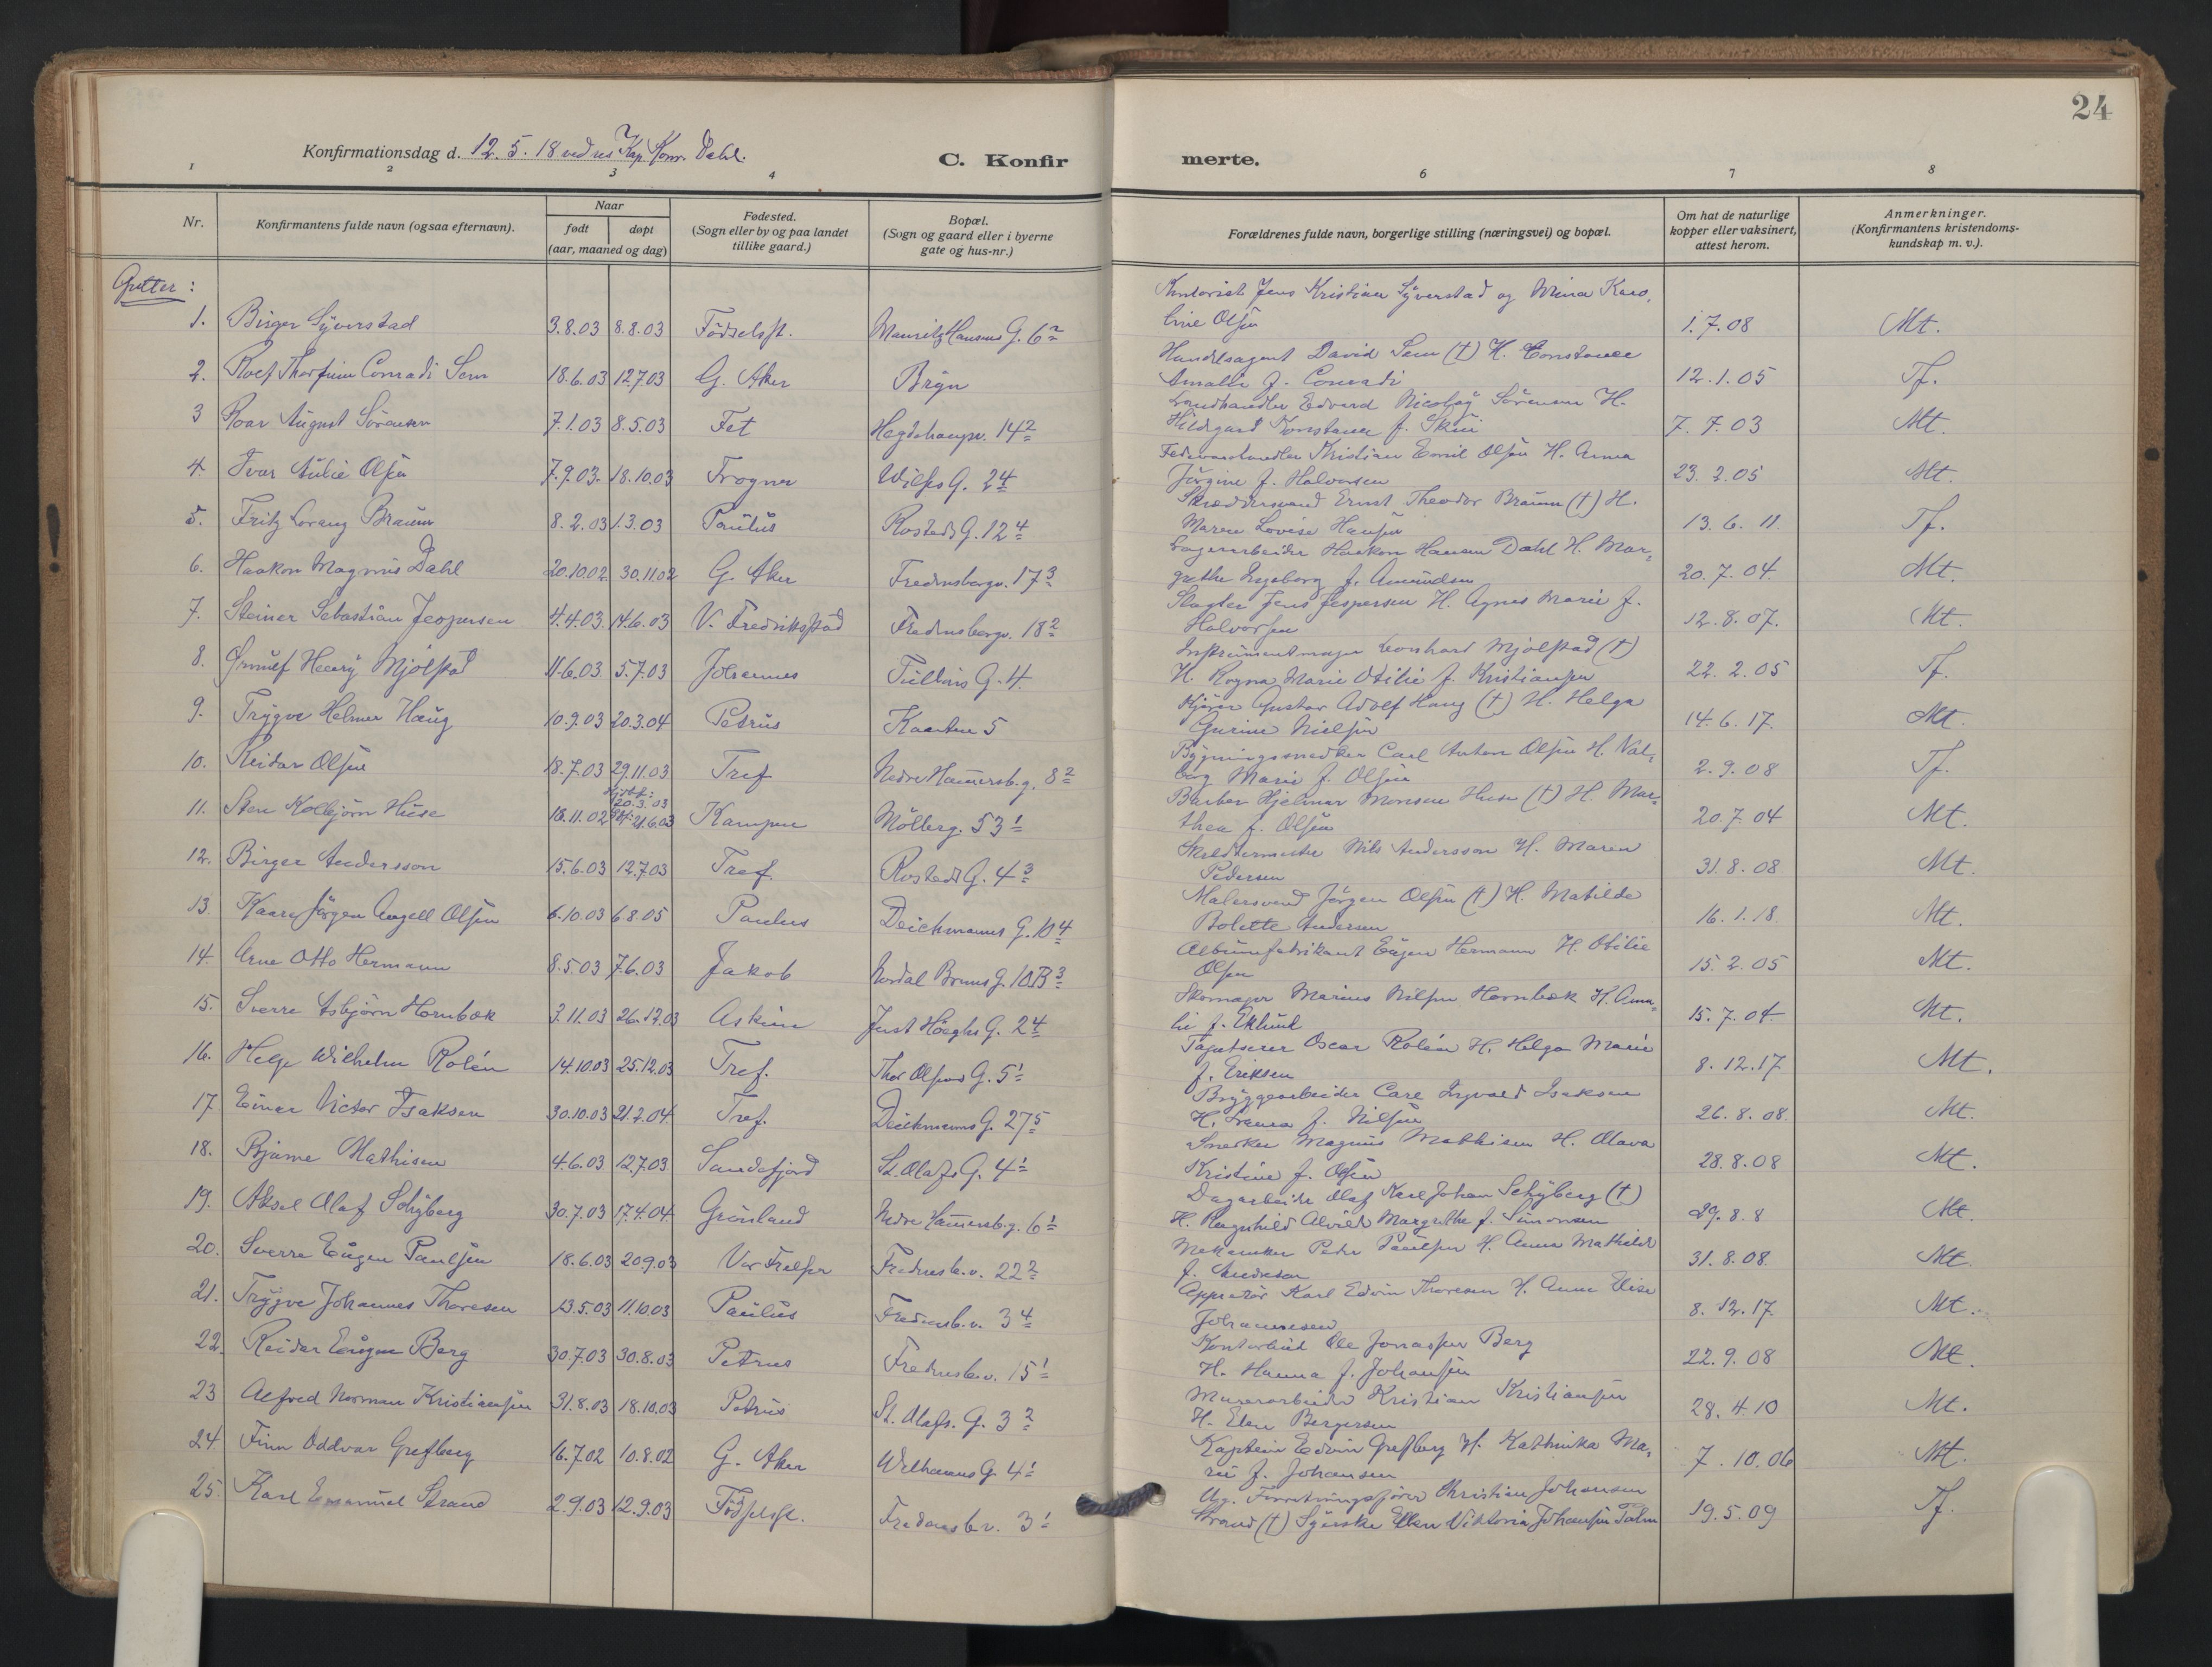 24
Konfirmationsdag d. 12. 5. 18 ved res. Kap. Konr. Dahl.
C. Konfirmerte.
1 2 3 4 6 7 8
Nr.
Konfirmantens fulde navn (ogsaa efternavn).
Naar
født døpt
(aar, maaned og dag)
Fødested.
(Sogn eller by og paa landet
tillike gaard.)
Bopæl.
(Sogn og gaard eller i byerne
gate og hus-nr.)
Forældrenes fulde navn, borgerlige stilling (næringsvei) og bopæl.
Om hat de naturlige
kopper eller vaksinert,
attest herom.
Anmerkninger.
(Konfirmantens kristendoms-
kundskap m. v.).
Gutter:
Kontorist Jens Kristian Syverstad og Mina Karo,
1. Birger Syverstad 3.8.03 8.8.03 Födselsst. Mauritz Hansens G. 6² line Olsen 1.7.08 Mt.
Handelsagent David Sem (†) H. Constance
2. Rolf Thorfinn Conradi Sem 18.6.03 12.7.03 G. Aker Bryn Amalie f. Conradi 12.1.05 Tf.
Landhandler Edvard Nicolay Sörensen H.
3 Roar August Sörensen 7.1.03 8.5.03 Fet Hegdehaugsv. 14² Hildegard Konstance f. Skui 7.7.03 Mt.
Kristian Emil Olsen H. Anna
4. Ivar Olsen 7.9.03. 18.10.03 Frogner Wilses G. 2⁴ Jörgine f. Halvorsen 23.2.05 Mt.
Skræddersvend Ernst Theodor Braum (†) H.
5. Fritz Lorang Braum 8.2.03 1.3.03 Paulus Rosteds G. 12⁴ Maren Lovise Hansen 13.6.11. Tf.
Lagerarbeider Haakon Hansen Dahl H. Mar-
6. Haakon Magnus Dahl 20.10.02 30.11.02 G. Aker Fredensborgv. 17³ grethe Ingeborg f. Amundsen 20.7.04. Mt.
Slagter Jens Jespersen H. Agnes Marie f.
7. Steiner Sebastian Jespersen 4.4.03. 14.6.03 V. Fredriksstad Fredensborgv. 18² Halvorsen 12.8.07. Mt.
Instrumentmager Leonhard Mjölstad (†)
8. Ørnulf Henry Mjölstad 11.6.03 5.7.03 Johannes Tullins G. 4. H. Ragna Marie Otilie f. Kristiansen 22.2.05 Tf.
Kjører Gustav Adolf Haug (†) H. Helga
9. Trygve Helmer Haug 10.9.03 20.3.04 Petrus Kaarten 5 Gurine Nielsen 14.6.17. Mt.
Bygningssnedker Carl Anton Olsen H. Val-
10. Reidar Olsen 18.7.03 29.11.03 Tref Nedre Hammersb. g. 8² borg Marie f. Olsen 2.9.08 Tf.
Barber Hjelmar Monsen Huse (†) H. Mar-
11. Sten Kolbjörn Huse 16.11.02 Hjdöpt: 20.3.03 21.6.03 Kampen Möllerg. 53¹ thea f. Olsen 20.7.04 Mt.
Nils Andersson H. Maren
12. Birger Andersson 15.6.03 12.7.03 Tref. Rosteds G. 4³ Pedersen 31.8.08 Mt.
Malersvend Jörgen Olsen (†) H. Matilde
13. Kaare Jörgen Angell Olsen 6.10.03 6.8.05 Paulus Deichmanns G. 10⁴ Bolette Andersen 16.1.18. Mt.
Albumfabrikant Eugen Hermann H. Otilie
14. Arne Otto Hermann 8.5.03 7.6.03 Jakob Nordal Bruns G. 10B³ Olsen 15.2.05 Mt.
Skomager Marius Nilsen Hornbæk H. Ama-
15. Sverre Asbjörn Hornbæk 3.11.03 26.12.03 Askim Just Höeghs G. 2⁴ lie f. Eklund 15.7.04. Mt.
Tapetserer Oscar Rolén H. Helga Marie
16. Helge Wilhelm Rolén 14.10.03 25.12.03 Tref. Thor Olsens G. 5¹ f. Eriksen 8.12.17 Mt.
Bryggearbeider Carl Ingvald Isaksen
17. Einar Victor Isaksen 30.10.03 21.2.04 Tref. Deichmanns G. 27⁵ H. f. Nilsen 26.8.08. Mt.
Snerker Magnus Mathisen H. Olava
18. Bjarne Mathisen 4.6.03 12.7.03 Sandefjord St. Olafs G. 4¹ Kristine f. Olsen 28.8.08 Mt.
Dagarbeider Olaf Karl Johan Schyberg (†)
19. Aksel Olaf Schyberg 30.7.03 17.4.04 Grönland Nedre Hammersb. g. 6¹ H. Ragnhild Alvilde Margrethe f. Simonsen 29.8.8 Mt.
Mekaniker Peder Paulsen H. Anna Mathilde
20. Sverre Eugen Paulsen 18.6.03 20.9.03 Vor Frelser Fredensb. v. 22² f. Andresen 31.8.08. Mt.
Oppretör Karl Edvin Thoresen H. Anna Elise
21. Trygve Johannes Thoresen 13.5.03 11.10.03 Paulus Fredensb. v. 3⁴ Johannesen 8.12.17. Mt.
Kontorbud Ole Jonassen Berg
22. Reidar Eugen Berg 30.7.03 30.8.03 Petrus Fredensb. v. 15¹ H. Hanna f. Johansen 22.9.08 Mt.
Murerarbeider Kristian Kristiansen
23 Alfred Norman Kristiansen 31.8.03 18.10.03 Petrus St. Olafs. G. 3² H. Elen Bergersen 28.4.10 Mt.
Kaptein Edvin Grefberg H. Kathinka Ma-
24. Finn Oddvar Grefberg 16.7.02 10.8.02 G. Aker Welhavens G. 4¹ rie f. Johansen 7.10.06 Mt.
Ug. Forretningsfører Christian Johansen
25. Karl Emanuel Strand 2.9.03 12.9.03 Födselsst. Fredensb. v. 3¹ Strand (†) Syerske Ellen Viktoria Johansen 19.5.09 Tf.